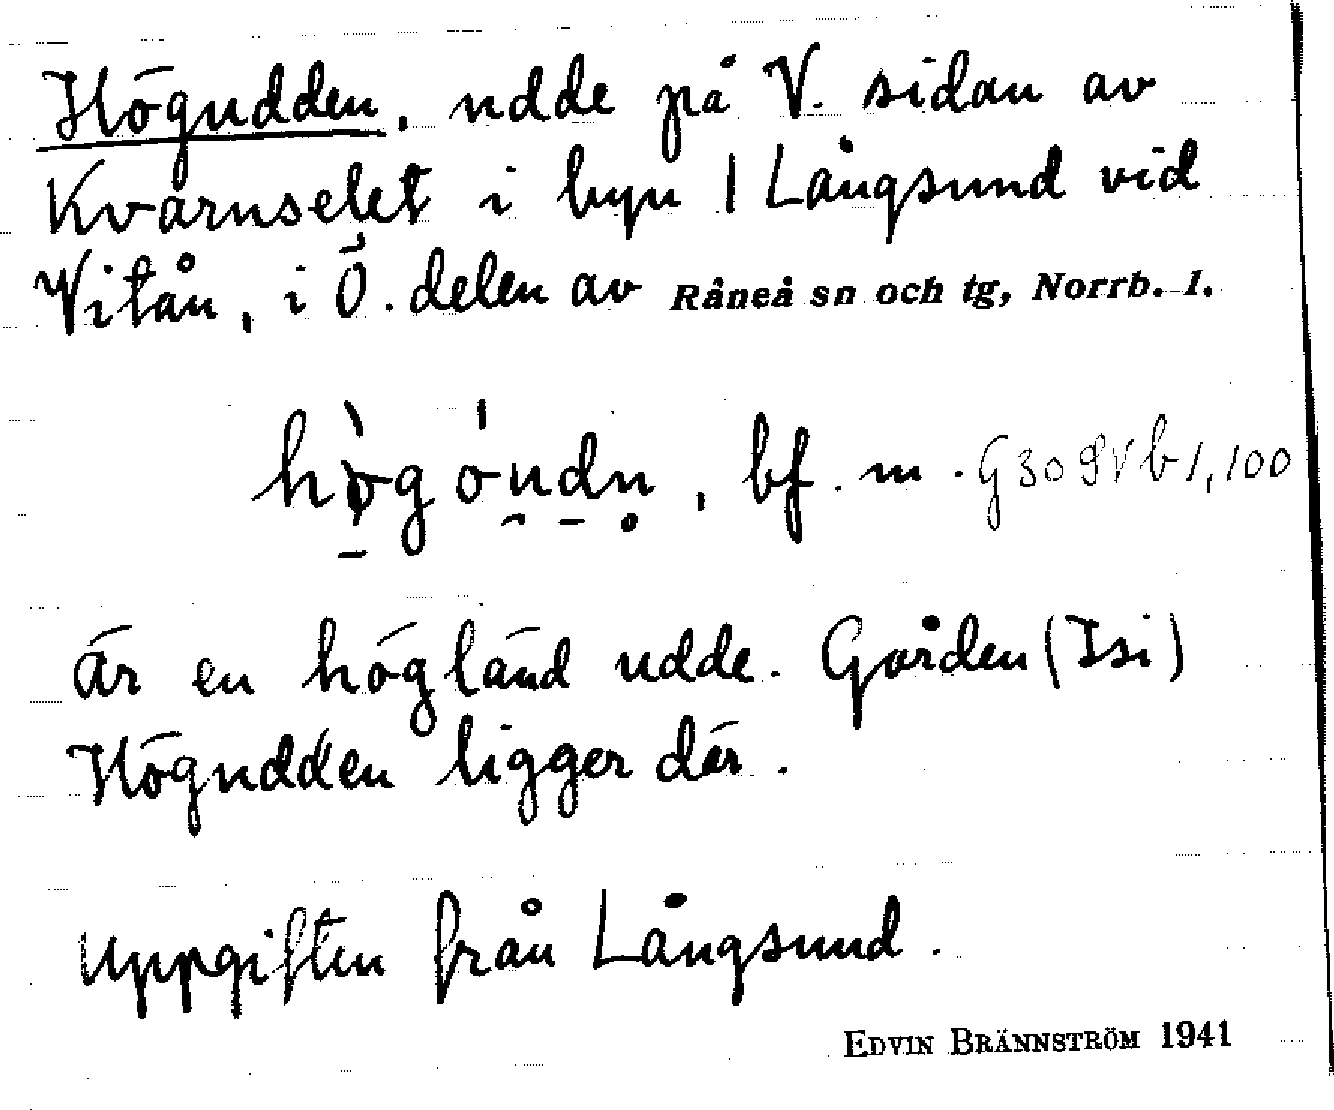 Högudden, udde på V. sidan av
Kvarnselet i byn 1 Långsund vid
Vitån, i Ö. delen av Råneå sn och tg, Norrb. l.
bf. m. G30SVb1,100
Är en högländ udde. Gården (Isi)
Högudden ligger där.
Uppgiften från Långsund.
EDVIN BRÄNNSTRÖM 1941